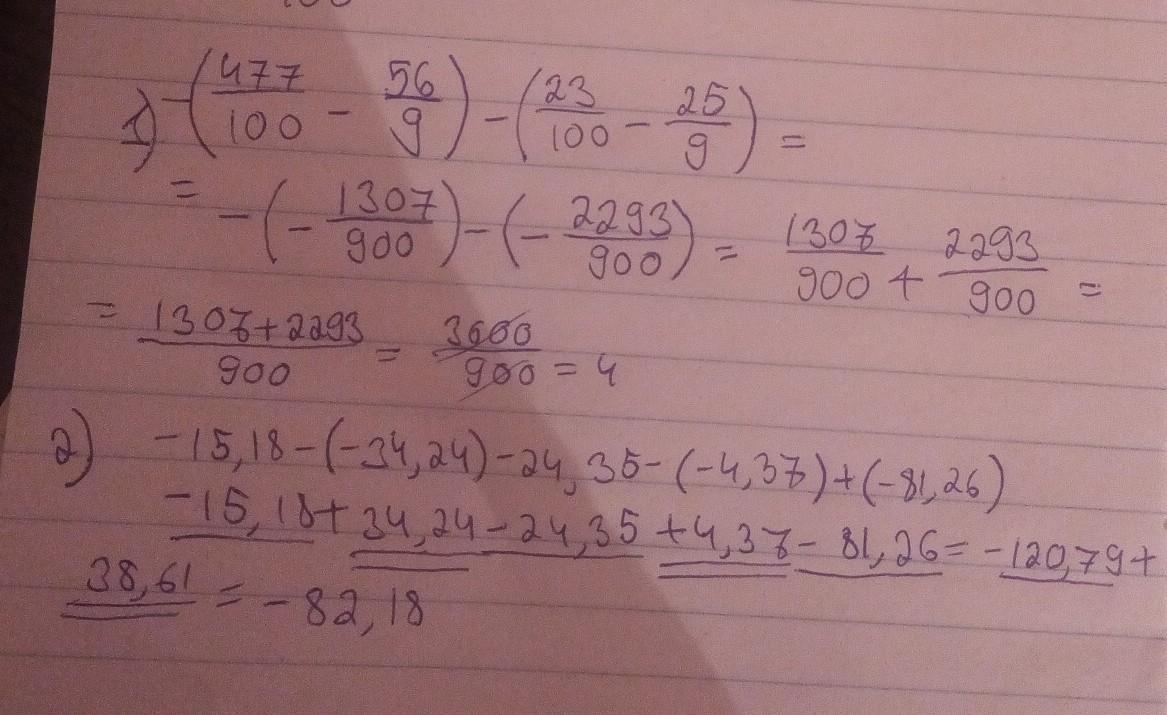 1) -(477/100 - 56/9) - (23/100 - 25/9) =
= -(- 1307/900) - (- 2293/900) = 1307/900 + 2293/900 =
= 1307+2293/900 = 3600/900 = 4
2) -15,18-(-34,24)-24,35-(-4,37)+(-81,26)
-15,18+34,24-24,35+4,37-81,26=-120,79+
38,61 = -82,18